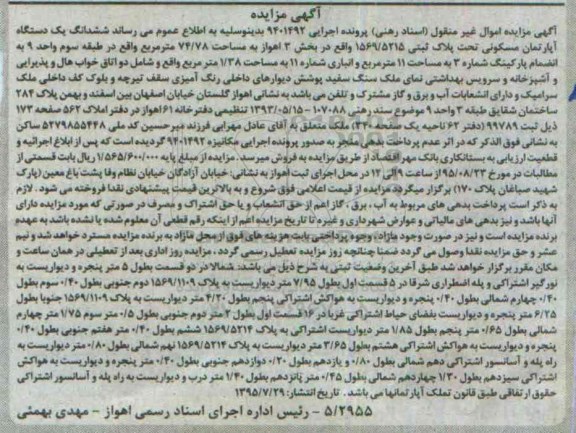 آگهی مزایده
آگهی مزایده اموال غیر منقول (اسناد رهنی) پرونده اجرایی ۹۴۰۱۴۹۲ بدینوسیله به اطلاع عموم می رساند ششدانگ یک دستگاه
آپارتمان مسکونی تحت پلاک ثبتی ۱۵۶۹/۵۲۱۵ واقع در بخش ۳ اهواز به مساحت ۷۴/۷۸ مترمربع واقع در طبقه سوم واحد ۹ به
انضمام پارکینگ شماره ۳ به مساحت ۱۱ مترمربع و انباری شماره ۱۱ به مساحت ۱/۳۸ متر مربع واقع و شامل دو اتاق خواب هال و پذیرایی
و آشپزخانه و سرویس بهداشتی نمای ملک سنگ سفید پوشش دیوارهای داخلی رنگ آمیزی سقف تیرچه و بلوک کف داخلی ملک
سرامیک و دارای انشعابات آب و برق و گاز مشترک و تلفن می باشد به نشانی اهواز گلستان خیابان اصفهان بین اسفند و بهمن پلاک ۲۸۴
ساختمان شقایق طبقه ۳ واحد ۹ موضوع سند رهنی ۱۰۷۰۸۸ - ۱۳۹۳/۰۵/۱۵ تنظیمی دفترخانه ۶۱ اهواز در دفتر املاک ۵۶۲ صفحه ۱۷۳
ذیل ثبت ۹۹۷۸۹ (دفتر ۶۲ ناحیه یک صفحه ۳۳۰) ملک متعلق به آقای عادل مهرابی فرزند میرحسین کد ملی ۵۲۷۹۸۵۵۴۴۸ ساکن
به نشانی فوق الذکر که در اثر عدم پرداخت بدهی منجر به صدور پرونده اجرایی مکانیزه ۹۴۰۱۴۹۲ گردیده است که پس از ابلاغ اجرائیه و
قطعیت ارزیابی به بستانکاری بانک مهر اقتصاد از طریق مزایده به فروش میرسد. مزایده از مبلغ پایه ۱/۵۶۵/۶۰۰/۰۰۰ ریال بابت قسمتی از
مطالبات در مورخ ۹۵/۰۸/۲۳ از ساعت ۹ الی ۱۲ در محل اجرای ثبت اهواز به نشانی: خیابان آزادگان خیابان نظام وفا پشت باغ معین (پارک
شهید صباغان پلاک ۱۷۰) برگزار میگردد مزایده از قیمت اعلامی فوق شروع و به بالاترین قیمت پیشنهادی نقدا فروخته می شود. لازم
به ذکر است پرداخت بدهی های مربوط به آب، برق، گاز اعم از حق انشعاب و یا حق اشتراک و مصرف در صورتی که مورد مزایده دارای
آنها باشد و نیز بدهی های مالیاتی و عوارض شهرداری و غیره تا تاریخ مزایده اعم از اینکه رقم قطعی آن معلوم شده یا نشده باشد به عهده
برنده مزایده است و نیز در صورت وجود مازاد، وجوه پرداختی بابت هزینه های فوق از محل مازاد به برنده مزایده مسترد خواهد شد و نیم
عشر و حق مزایده نقدا وصول می گردد ضمنا چنانچه روز مزایده تعطیل رسمی گردد، مزایده روز اداری بعد از تعطیلی در همان ساعت و
مکان مقرر برگزار خواهد شد طبق آخرین وضعیت ثبتی به شرح ذیل می باشد: شمالا در دو قسمت بطول ۵ متر پنجره و دیواریست به
نورگیر اشتراکی و پله اضطراری شرقا در ۵ قسمت اول بطول ۷/۹۵ متر دیواریست به پلاک ۱۵۶۹/۱۱۰۹ دوم جنوبی بطول ۰/۴۰ سوم بطول
۰/۴۰ چهارم شمالی بطول ۰/۴۰ پنجره و دیواریست به هواکش اشتراکی پنجم بطول ۴/۲۰ متر دیواریست به پلاک ۱۵۶۹/۱۱۰۹ جنوبا بطول
۶/۲۵ متر پنجره و دیواریست بفضای حیاط اشتراکی غربا در ۱۶ قسمت اول بطول ۲ متر دوم جنوبی بطول ۰/۵ متر سوم ۱/۷۵ متر چهارم
شمالی بطول ۰/۶۵ متر پنجم بطول ۱/۸۵ متر دیواریست اشتراکی به پلاک ۱۵۶۹/۵۲۱۴ ششم بطول ۰/۴۰ متر هفتم جنوبی بطول ۰/۴۰
پنجره و دیواریست به هواکش اشتراکی هشتم بطول ۳/۶۵ متر دیواریست به پلاک ۱۵۶۹/۵۲۱۴ نهم شمالی بطول ۰/۸۰ متر دیواریست به
راه پله و آسانسور اشتراکی دهم شمالی بطول ۰/۸۰ و یازدهم بطول ۰/۲۰ دوازدهم جنوبی بطول ۰/۴۰ متر پنجره و دیواریست به هواکش
اشتراکی سیزدهم بطول ۱/۳۰ چهاردهم شمالی بطول ۰/۴۵ متر پانزدهم بطول ۱/۴۰ متر درب و دیواریست به راه پله و آسانسور اشتراکی
حقوق ارتفاقی طبق قانون تملک آپارتمانها می باشد. تاریخ انتشار: ۱۳۹۵/۷/۲۹
۵/۲۹۵۵ - رئیس اداره اجرای اسناد رسمی اهواز - مهدی بهمئی